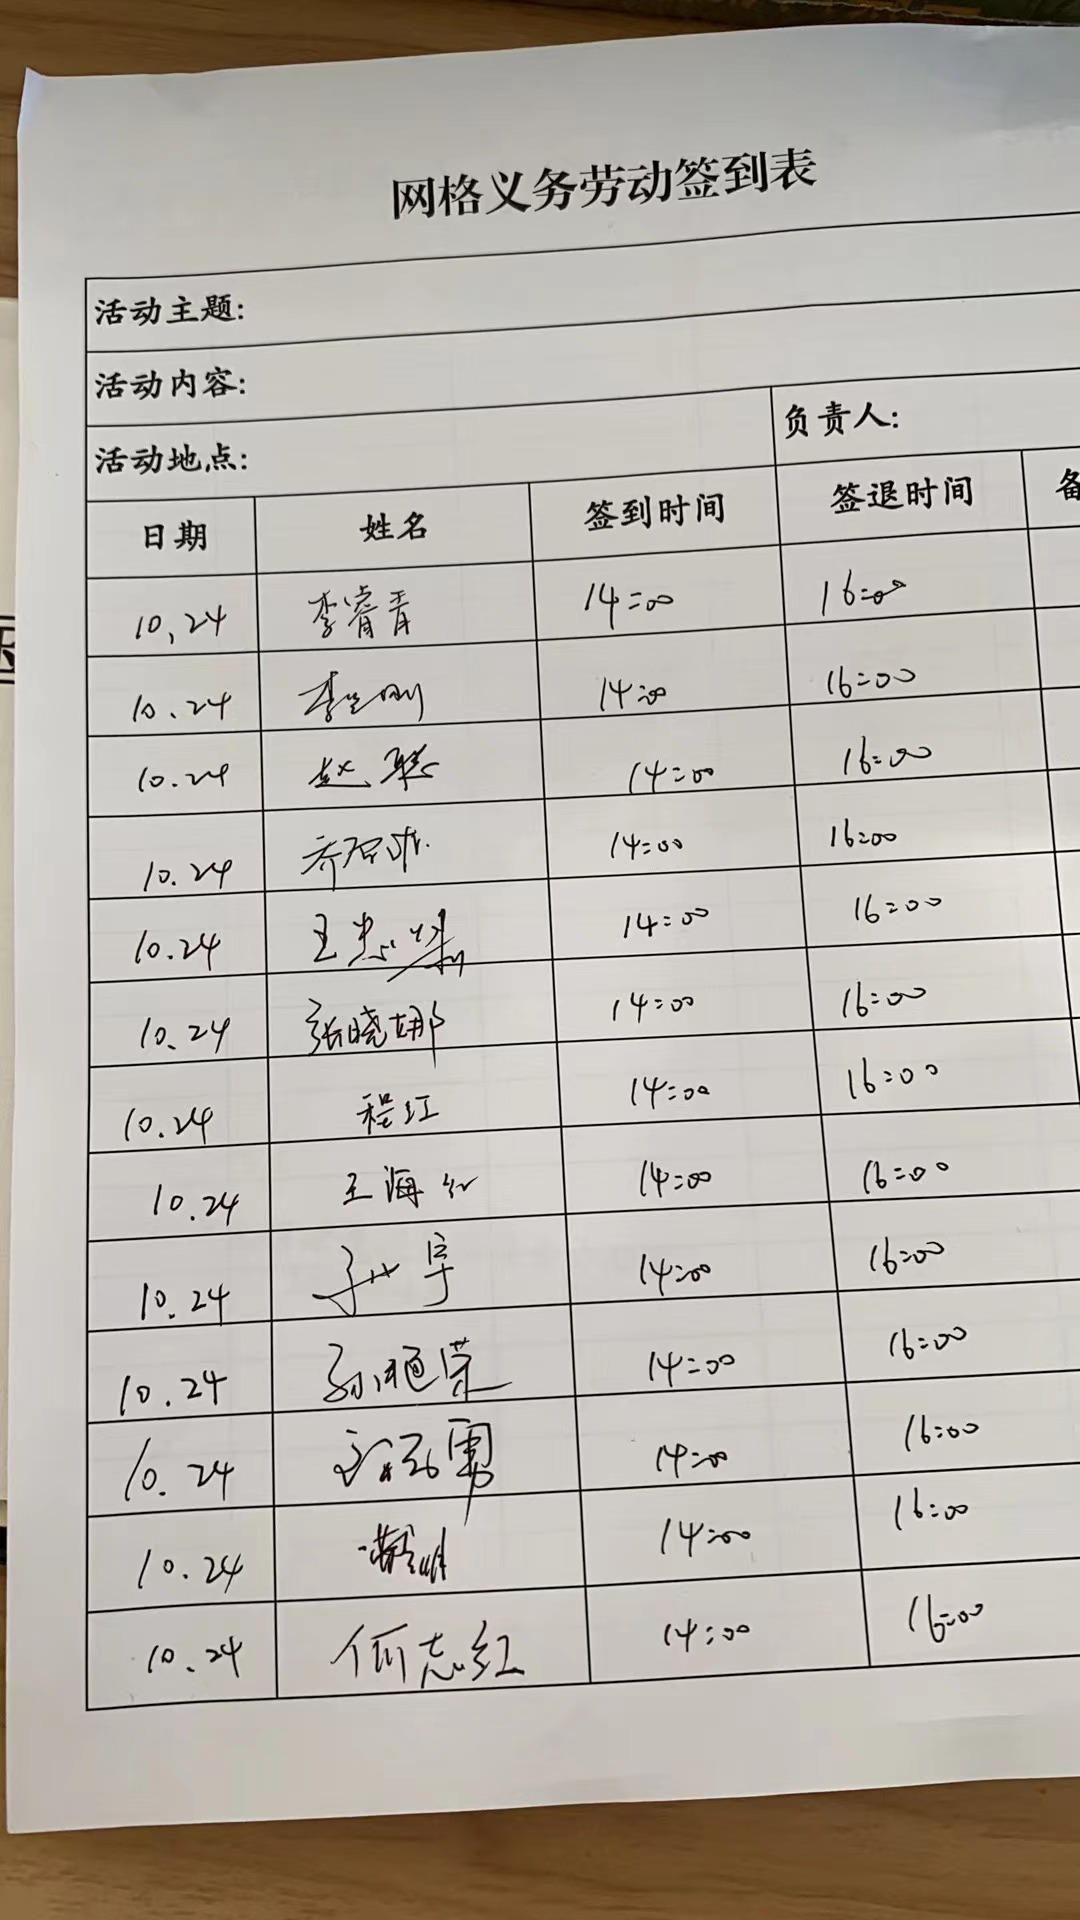 网格义务劳动签到表
活动主题:
活动内容:
活动地点: 负责人:
日期 姓名 签到时间 签退时间 备
10.24 李睿青 14:00 16:00
10.24 14:00 16:00
10.24 14:00 16:00
10.24 14:00 16:00
10.24 14:00 16:00
10.24 张晓娜 14:00 16:00
10.24 程江 14:00 16:00
10.24 王海红 14:00 16:00
10.24 14:00 16:00
10.24 孙艳荣 14:00 16:00
10.24 14:00 16:00
10.24 14:00 16:00
10.24 何志红 14:00 16:00